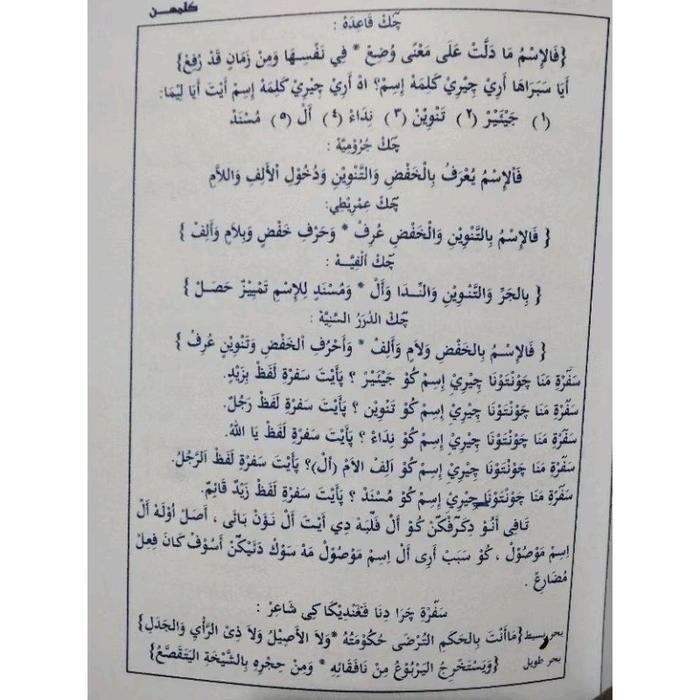 كلمهن
چَكْ قَاعِدَهْ :
{فَالْاِسْمُ مَا دَلَّتْ عَلَى مَعْنًى وُضِعْ * فِي نَفْسِهَا وَمِنْ زَمَانٍ قَدْ رُفِعْ}
أَيَا سَبَرَاهَا أَرِيْ چِيْرِيْ كَلِمَهْ إِسِمْ؟ اهْ أَرِيْ چِيْرِيْ كَلِمَهْ إِسِمْ أَيْتْ أَيَا لِيْمَا:
(١) جَيْئَيْرْ (٢) تَنْوِيْنْ (٣) نِدَاءْ (٤) أَلْ (٥) مُسْنَدْ
چَكْ جُرُوْمِيَّهْ :
فَالْاِسْمُ يُعْرَفُ بِالْخَفْضِ وَالتَّنْوِيْنِ وَدُخُوْلِ اْلأَلِفِ وَاللاَّمِ
چَكْ عِمْرِيْطِي:
{ فَالْاِسْمُ بِالتَّنْوِيْنِ وَالْخَفْضِ عُرِفْ * وَحَرْفِ خَفْضٍ وَبِلَامٍ وَأَلِفْ }
چَكْ اَلْفِيَّهْ :
{ بِالجَرِّ وَالتَّنْوِيْنِ وَالنِّدَا وَأَلْ * وَمُسْنَدٍ لِلْاِسْمِ تَمْيِيْزٌ حَصَلْ }
چَكْ الدُّرَرُ السَّنِيَّهْ :
{ فَالْاِسْمُ بِالخَفْضِ وَلَامٍ وَأَلِفْ * وَأَحْرُفِ الخَفْضِ وَتَنْوِيْنٍ عُرِفْ }
سَفَرْةِ مَنَا چَوْنْتَوْنَا چِيْرِيْ إِسِمْ كَوْ جَيْئَيْرْ ؟ يَأَيْتْ سَفَرْةِ لَفَظْ بِزَيْدٍ.
سَفَرْةِ مَنَا چَوْنْتَوْنَا چِيْرِيْ إِسِمْ كَوْ تَنْوِيْنْ ؟ يَأَيْتْ سَفَرْةِ لَفَظْ رَجُلٌ.
سَفَرْةِ مَنَا چَوْنْتَوْنَا چِيْرِيْ إِسِمْ كَوْ نِدَاءْ ؟ يَأَيْتْ سَفَرْةِ لَفَظْ يَا اَللهُ.
سَفَرْةِ مَنَا چَوْنْتَوْنَا چِيْرِيْ إِسِمْ كَوْ اَلِفْ لاَمْ (أَلْ)؟ يَأَيْتْ سَفَرْةِ لَفَظْ اَلرَّجُلُ.
سَفَرْةِ مَنَا چَوْنْتَوْنَا چِيْرِيْ إِسِمْ كَوْ مُسْنَدْ ؟ يَأَيْتْ سَفَرْةِ لَفَظْ زَيْدٌ قَائِمٌ.
تَافِي أَنُوْ دِكَرَفْكَنْ كَوْ أَلْ فَلَبَهْ دِي أَيْتْ أَلْ نَوَنْ بَائَى ، أَصَلْ أَوْلَهْ أَلْ
اِسِمْ مَوْصُوْلْ ، كَوْ سَبَبْ أَرِى أَلْ اِسِمْ مَوْصُوْلْ مَهْ سَوْكْ دَئَيْكَنْ أَسُوْفْ كَانَ فِعِلْ
مُضَارِعْ .
سَفَرْةِ چَرَا دِنَا فَقَنْدِيْكَا كِى شَاعِرْ :
بحر بسيط {مَاأَنْتَ بِالحَكَمِ التُّرْضَى حُكُوْمَتُهُ * وَلاَ الأَصِيْلُ وَلاَ ذِى الرَّأْيِ وَالْجَدَلِ}
بحر طويل {وَيَسْتَخْرِجُ الْيَرْبُوْعُ مِنْ نَافَقَائِهِ * وَمِنْ جِحْرِهِ بِالشَّيْخَةِ الْيَتَقَصَّعُ}